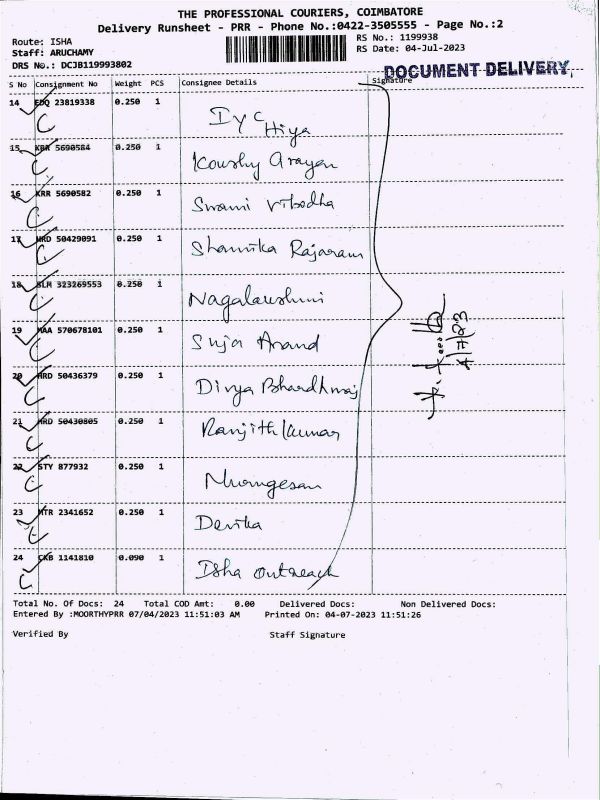 THE PROFESSIONAL COURIERS, COIMBATORE
Delivery Runsheet - PRR - Phone No.:0422-3505555 - Page No.:2
Route: ISHA
Staff: ARUCHAMY
DRS No.: DCJB119993802
RS No.: 1199938
RS Date: 04-Jul-2023
DOCUMENT DELIVERY
S No Consignment No Weight PCS Consignee Details Signature
14 EDQ 23819338 0.250 1
15 5690584 0.250 1
16 KRR 5690582 0.250 1 Swami Vibodha
17 HRD 50429091 0.250 1 Shamika Rajaram
18 SLM 323269553 0.250 1 Nagalakshmi
19 MAA 570678101 0.250 1 Suja Anand
20 HRD 50436379 0.250 1 Divya Bhardhwaj
21 HRD 50430805 0.250 1 Ranjith Kumar
22 STY 877932 0.250 1 Murugesan
23 MTR 2341652 0.250 1 Devika
24 CKB 1141810 0.090 1 Isha Outreach
4/7/23
Total No. Of Docs: 24 Total COD Amt: 0.00 Delivered Docs: Non Delivered Docs:
Entered By :MOORTHYPRR 07/04/2023 11:51:03 AM Printed On: 04-07-2023 11:51:26
Verified By Staff Signature